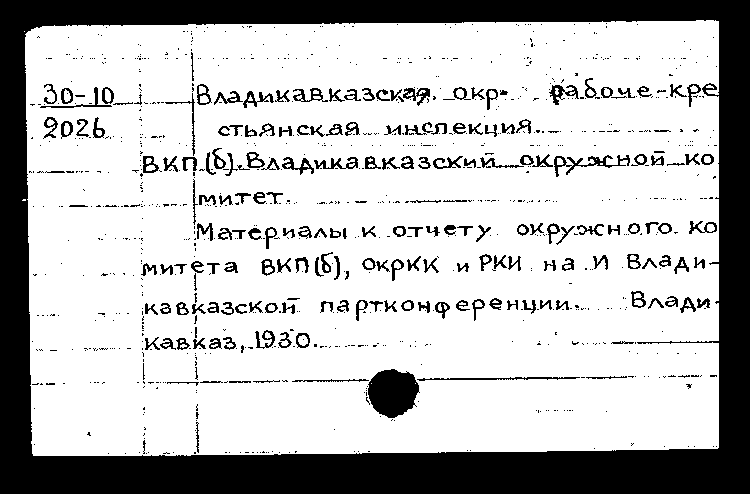 30-10 Владикавказская окр. рабоче-кре
2026 стьянская инспекция.
ВКП(б). Владикавказский окружной ко
митет.
Материалы к отчету окружного ко
митета ВКП(б), ОКРКК и РКИ на И Влади-
кавказской партконференции. Влади-
кавказ, 1930.